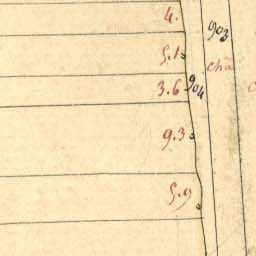 4.
903
5.1
chã
3.6
904
9.3
5.9